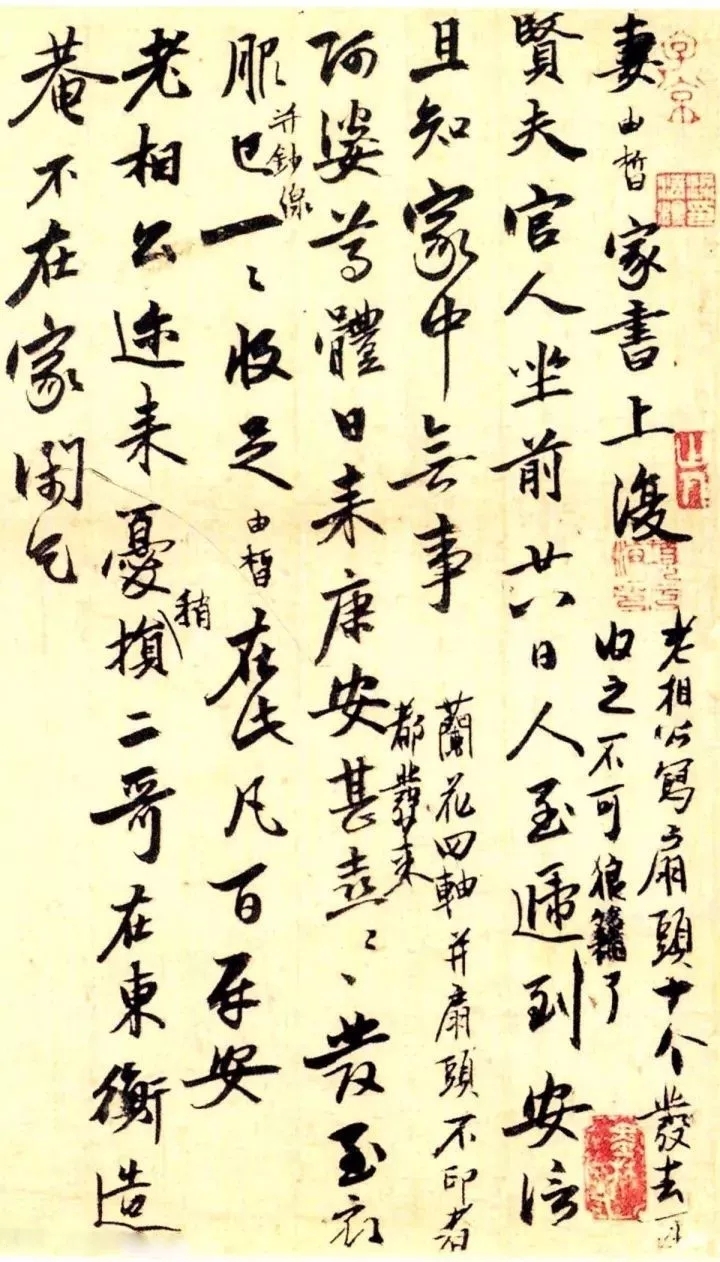 妻由皙家書上復
老相公寫扇頭十个發去可
收之不可狼籍了
賢夫官人坐前廿八日人至遞到安信
且知家中無事
蘭花四軸并扇頭不印者
都發來
阿婆尊體日來康安甚喜〻發至衣
服并鈔線已一〻收足由皙在此凡百平安
老相公迩来憂惱稍
二哥在東衡造
菴不在家閑乞